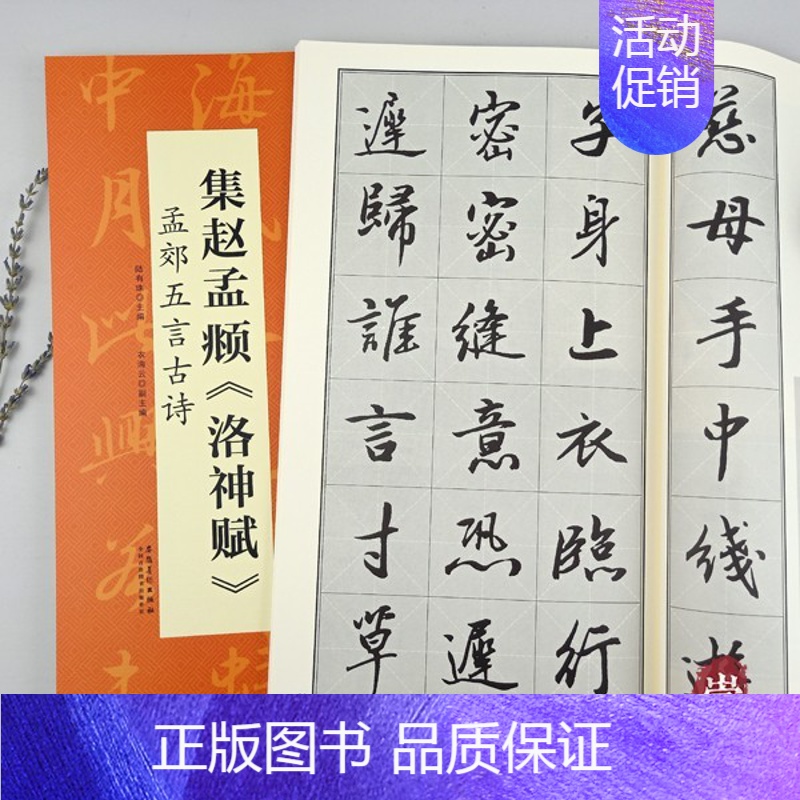 活动
促销
集赵孟頫《洛神赋》
孟郊五言古诗
陆有珠◎主编
农海云◎副主编
安徽美术出版社
慈母手中线游
子身上衣臨行
密密縫意恐遲
遲歸誰言寸草
正版图书 品质保证